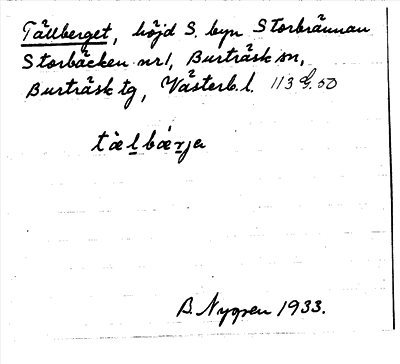 Tällberget, höjd S. byn Storbrännan
Storbäcken nr 1, Burträsk sn,
Burträsk tg, Västerb. l. 113 G. 50
tæ̀lbær̀ja
B. Nygren 1933.